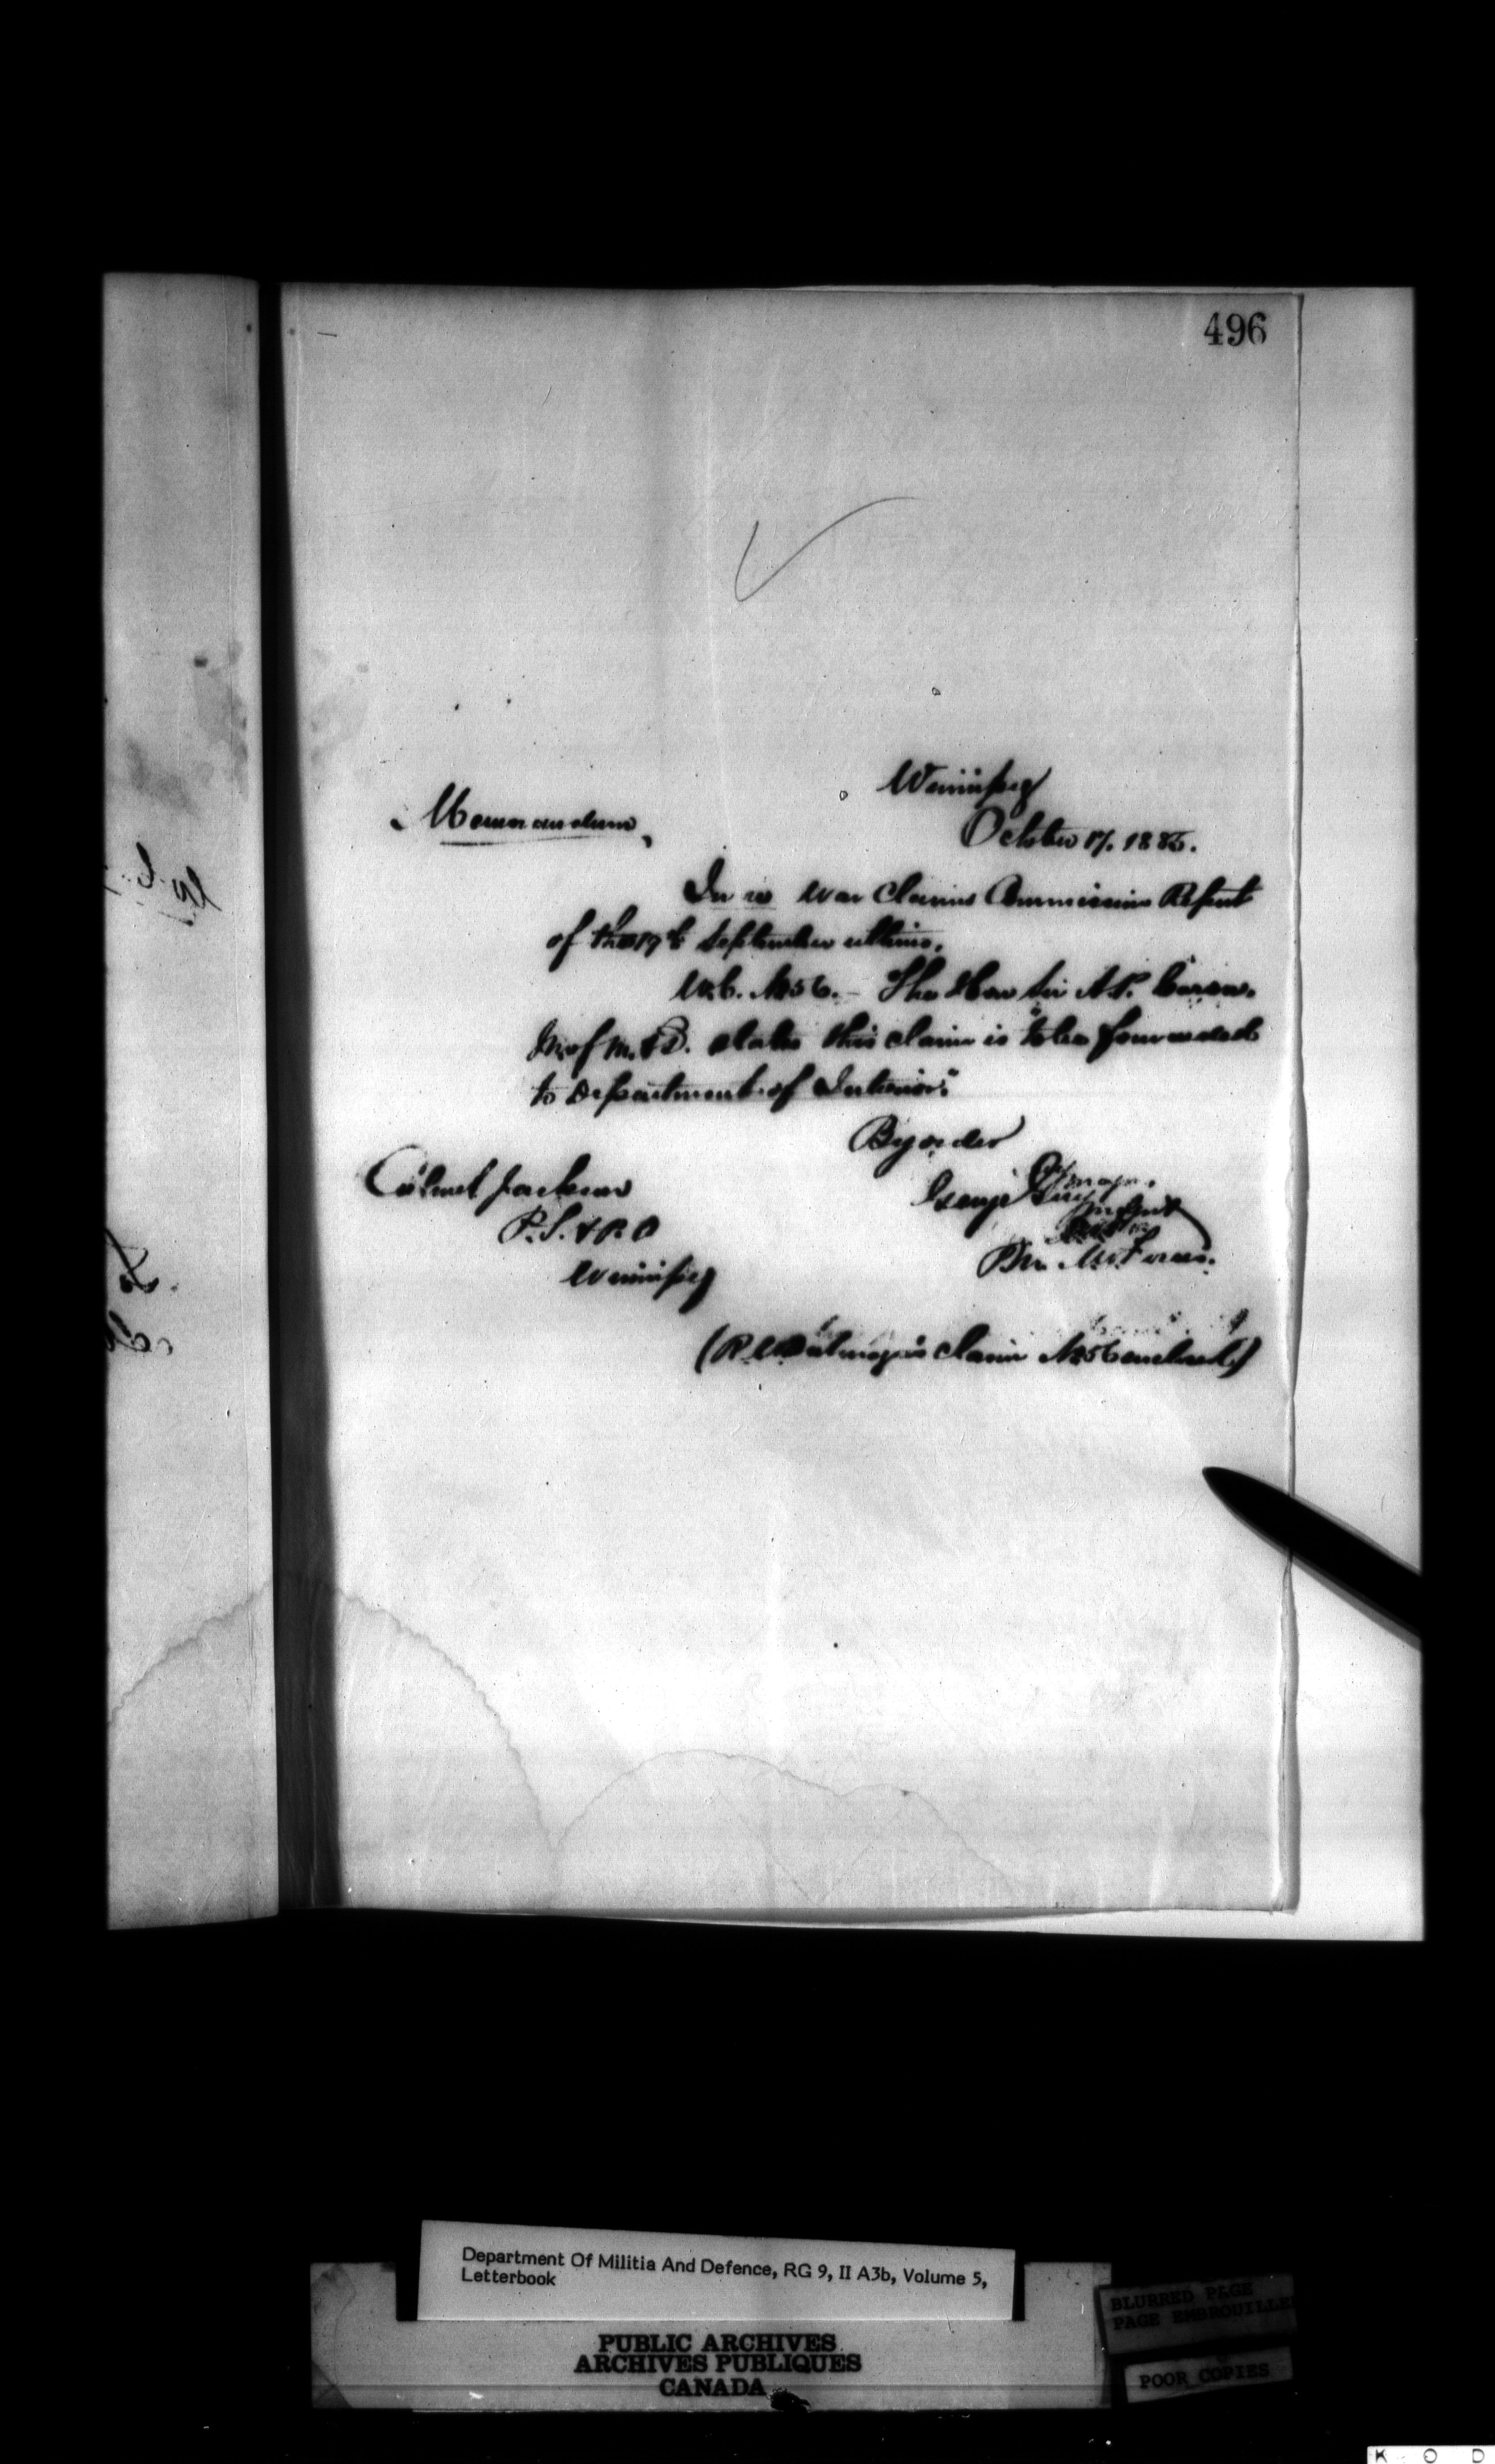 496
Winnipeg
Memorandum,
October 17. 1885.
In re War Claims Commission Report
of the 19th September ultimo.
W.C. No 56. - The Hon Sir A.P. Caron.
M. of M. & D. states this claim is "to be forwarded
to Department of Interior."
By order
Colonel Jackson
P.S. & P.O
Winnipeg
(R claim No 56 enclosed)
Department Of Militia And Defence, RG 9, II A3b, Volume 5,
Letterbook
BLURRED PAGE
PAGE EMBROUILLEE
PUBLIC ARCHIVES
ARCHIVES PUBLIQUES
CANADA
POOR COPIES
K O D